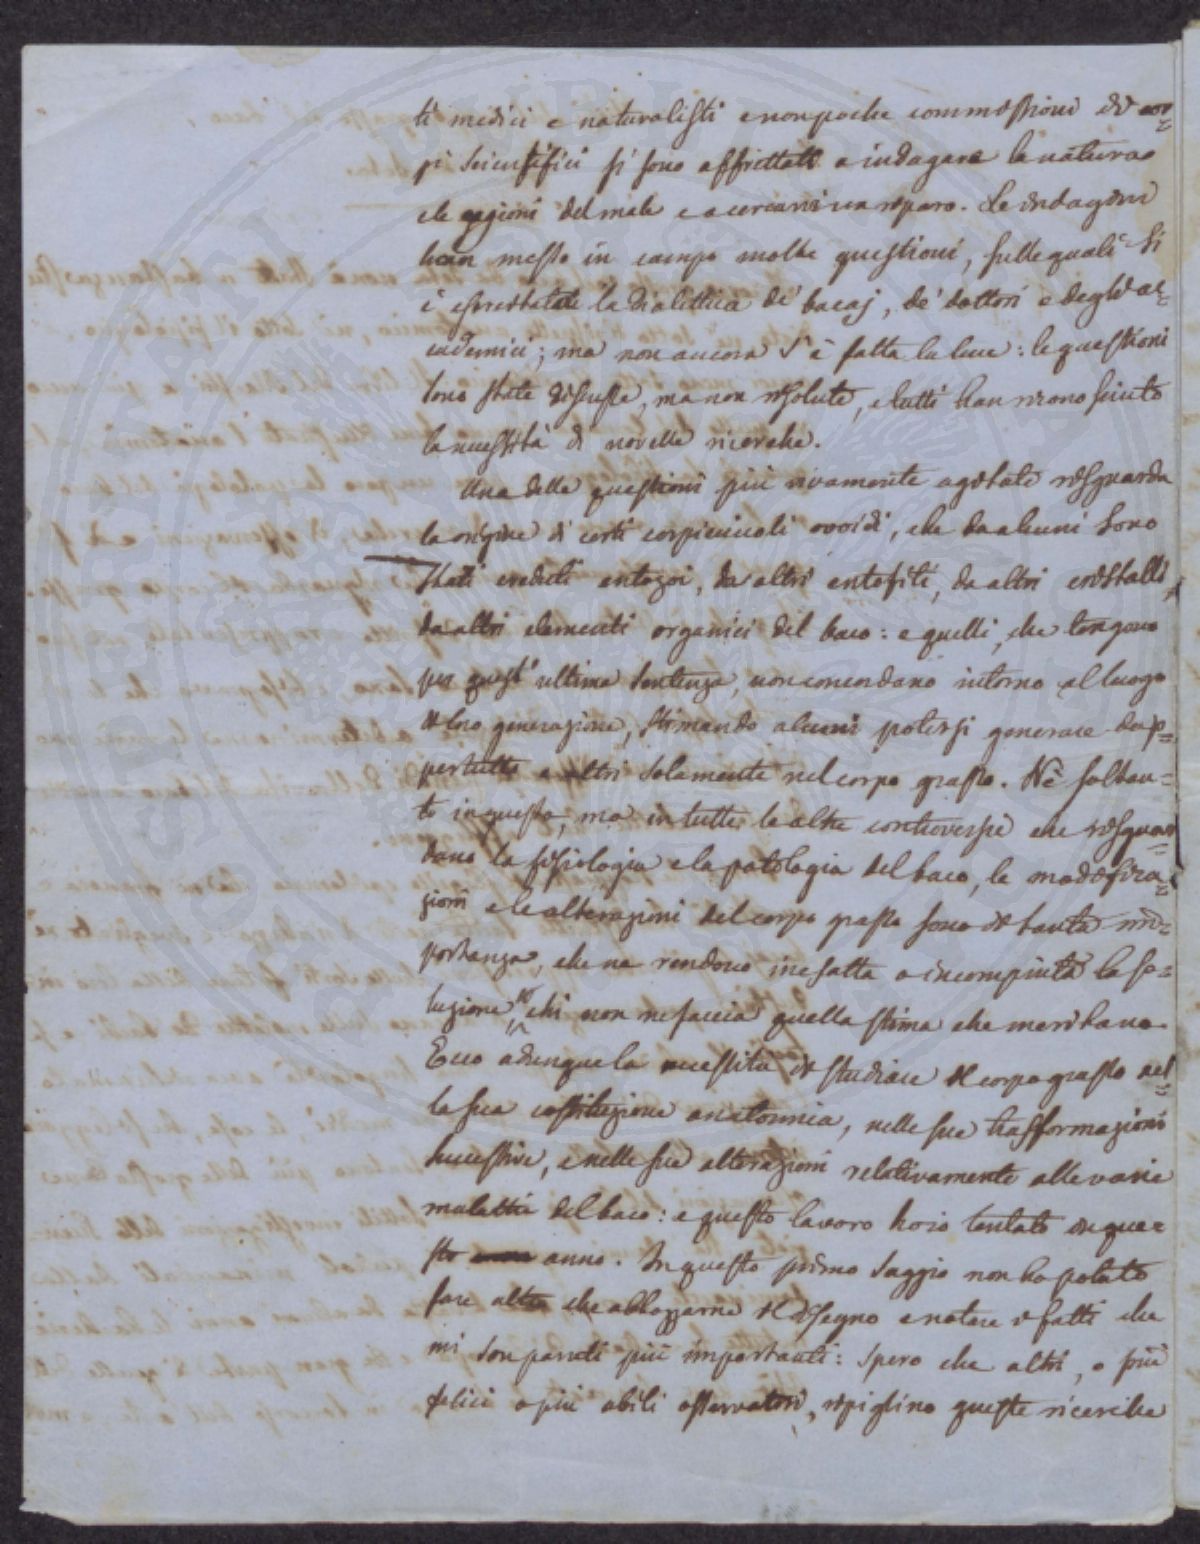 ti medici e naturalisti e non poche commessioni di cor=
pi scientifici si sono affrettati a indagare la natura
e le cagioni del male e a cercarvi un riparo. Le indagini
han messo in campo molte questioni, sulle quali si
è esercitata la dialettica de' bacaj, de' dottori e degli ac=
cademici; ma non ancora s'è fatta la luce: le questioni
sono state discusse, ma non risolute, e tutti han riconosciuto
la necessità di novelle ricerche.
Una delle questioni più vivamente agitate risguarda
la origine di certi corpicciuoli ovoidi, che da alcuni sono
stati creduti entozoi, da altri entofiti, da altri cristalli,
da altri elementi organici del baco: e quelli, che tengono
per quest'ultima sentenza, non concordano intorno al luogo
di loro generazione, stimando alcuni potersi generare dap=
pertutto e altri solamente nel corpo grasso. Nè soltan=
to in questa, ma in tutte le altre controversie che risguar=
dano la fisiologia e la patologia del baco, le modifica=
zioni e le alterazioni del corpo grasso sono di tanta im=
portanza, che ne rendono inesatta o incompiuta la so=
luzione a chi non ne faccia quella stima che meritano.
Ecco adunque la necessità di studiare il corpo grasso nel=
la sua costituzione anatomica, nelle sue trasformazioni
successive, e nelle sue alterazioni relativamente alle varie
malattie del baco: e questo lavoro ho io tentato in que=
sto anno. In questo primo saggio non ho potuto
fare altro che abbozzarne il disegno e notare i fatti che
mi son paruti più importanti: spero che altri, o più
felici o più abili osservatori, ripiglino queste ricerche